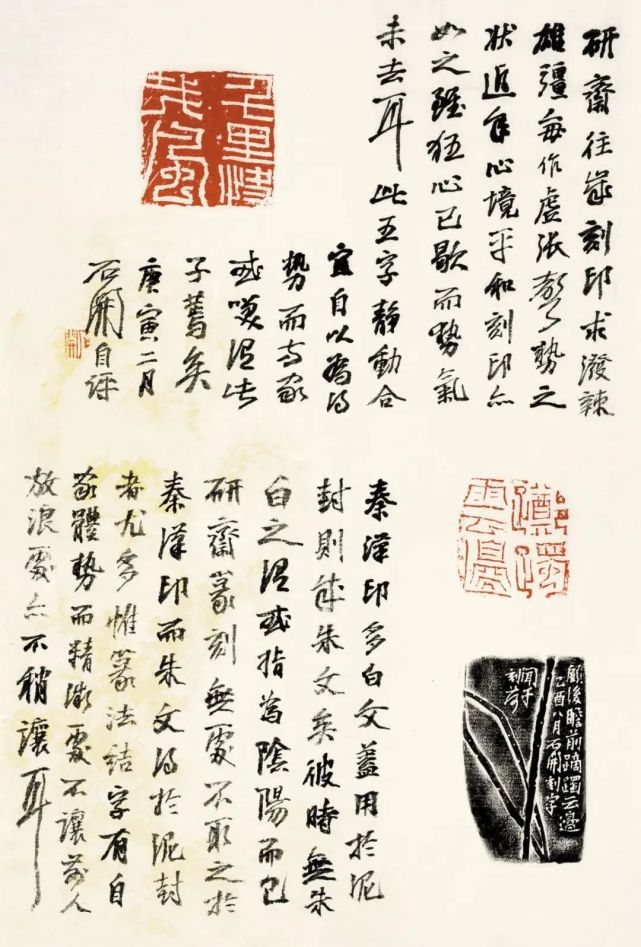 千里快
哉風
研齋往歲刻印求潑辣
雄彊每作虛張聲勢之
狀近年心境平和刻印亦
如之雖狂心已歇而勢氣
未去耳此五字靜動合
宜自以為得
勢而方家
或嘆謂此
子蔫矣
庚寅二月
石開自評
躑躅
雲邊
顧後瞻前躑躅云邊
乙酉八月石開刻字
聞子
刻荷
秦漢印多白文蓋用於泥
封則成朱文矣彼時無朱
白之謂或指為陰陽而已
研齋篆刻無處不取之於
秦漢印而朱文得於泥封
者尤多惟篆法結字有自
家體勢而精微處不讓前人
放浪處亦不稍讓耳